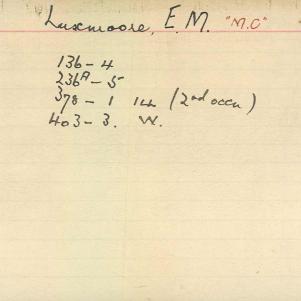 Luxmoore, E.M. "M.C"
136-4
236A-5
378-1 14 (2nd occn)
403-3. W.